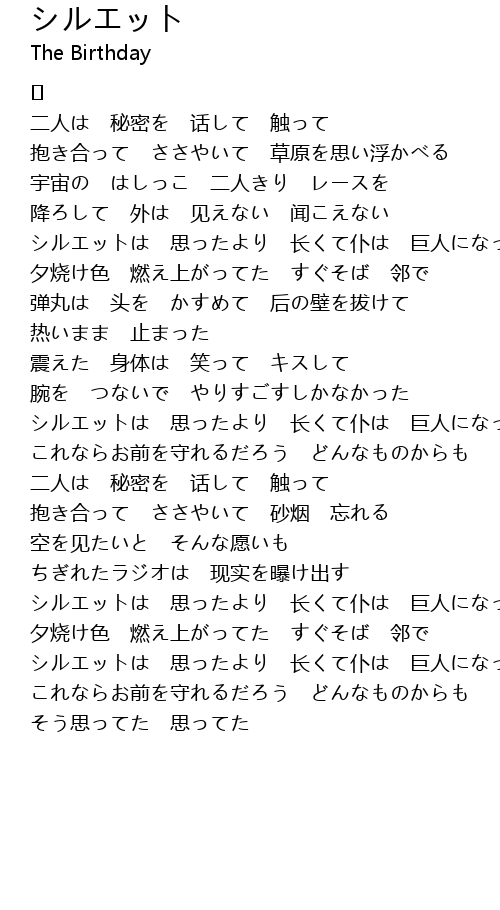 シルエット
The Birthday
二人は　秘密を　话して　触って
抱き合って　ささやいて　草原を思い浮かべる
宇宙の　はしっこ　二人きり　レースを
降ろして　外は　见えない　闻こえない
シルエットは　思ったより　长くて仆は　巨人になっ
夕烧け色　燃え上がってた　すぐそば　邻で
弹丸は　头を　かすめて　后の壁を拔けて
热いまま　止まった
震えた　身体は　笑って　キスして
腕を　つないで　やりすごすしかなかった
シルエットは　思ったより　长くて仆は　巨人になっ
これならお前を守れるだろう　どんなものからも
二人は　秘密を　话して　触って
抱き合って　ささやいて　砂烟　忘れる
空を见たいと　そんな愿いも
ちぎれたラジオは　现实を曝け出す
シルエットは　思ったより　长くて仆は　巨人になっ
夕烧け色　燃え上がってた　すぐそば　邻で
シルエットは　思ったより　长くて仆は　巨人になっ
これならお前を守れるだろう　どんなものからも
そう思ってた　思ってた